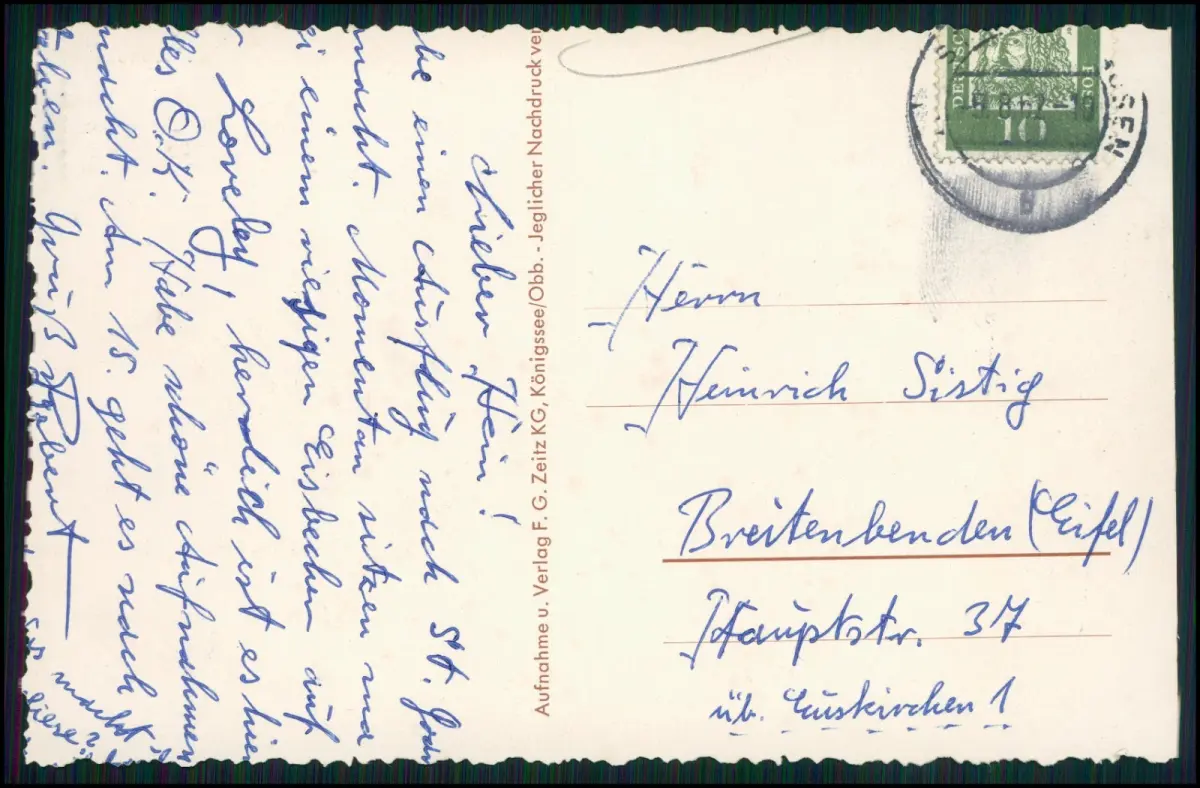 Lieber Hein!
be einen Ausflug nach St. Goar
macht. Momentan sitzen
i einem riesigen Eisbecher auf
Loreley! herrlich ist es hier
les O.K. Habe schöne Aufnahmen
macht. Am 15. geht es nach
talien. Gruß Hubert
macht
diese
Aufnahme u. Verlag F. G. Zeitz KG, Königssee/Obb. - Jeglicher Nachdruck ver
DEUTSCH
10
Herrn
Heinrich Sistig
Breitenbenden (Eifel)
Hauptstr. 37
üb. Euskirchen 1